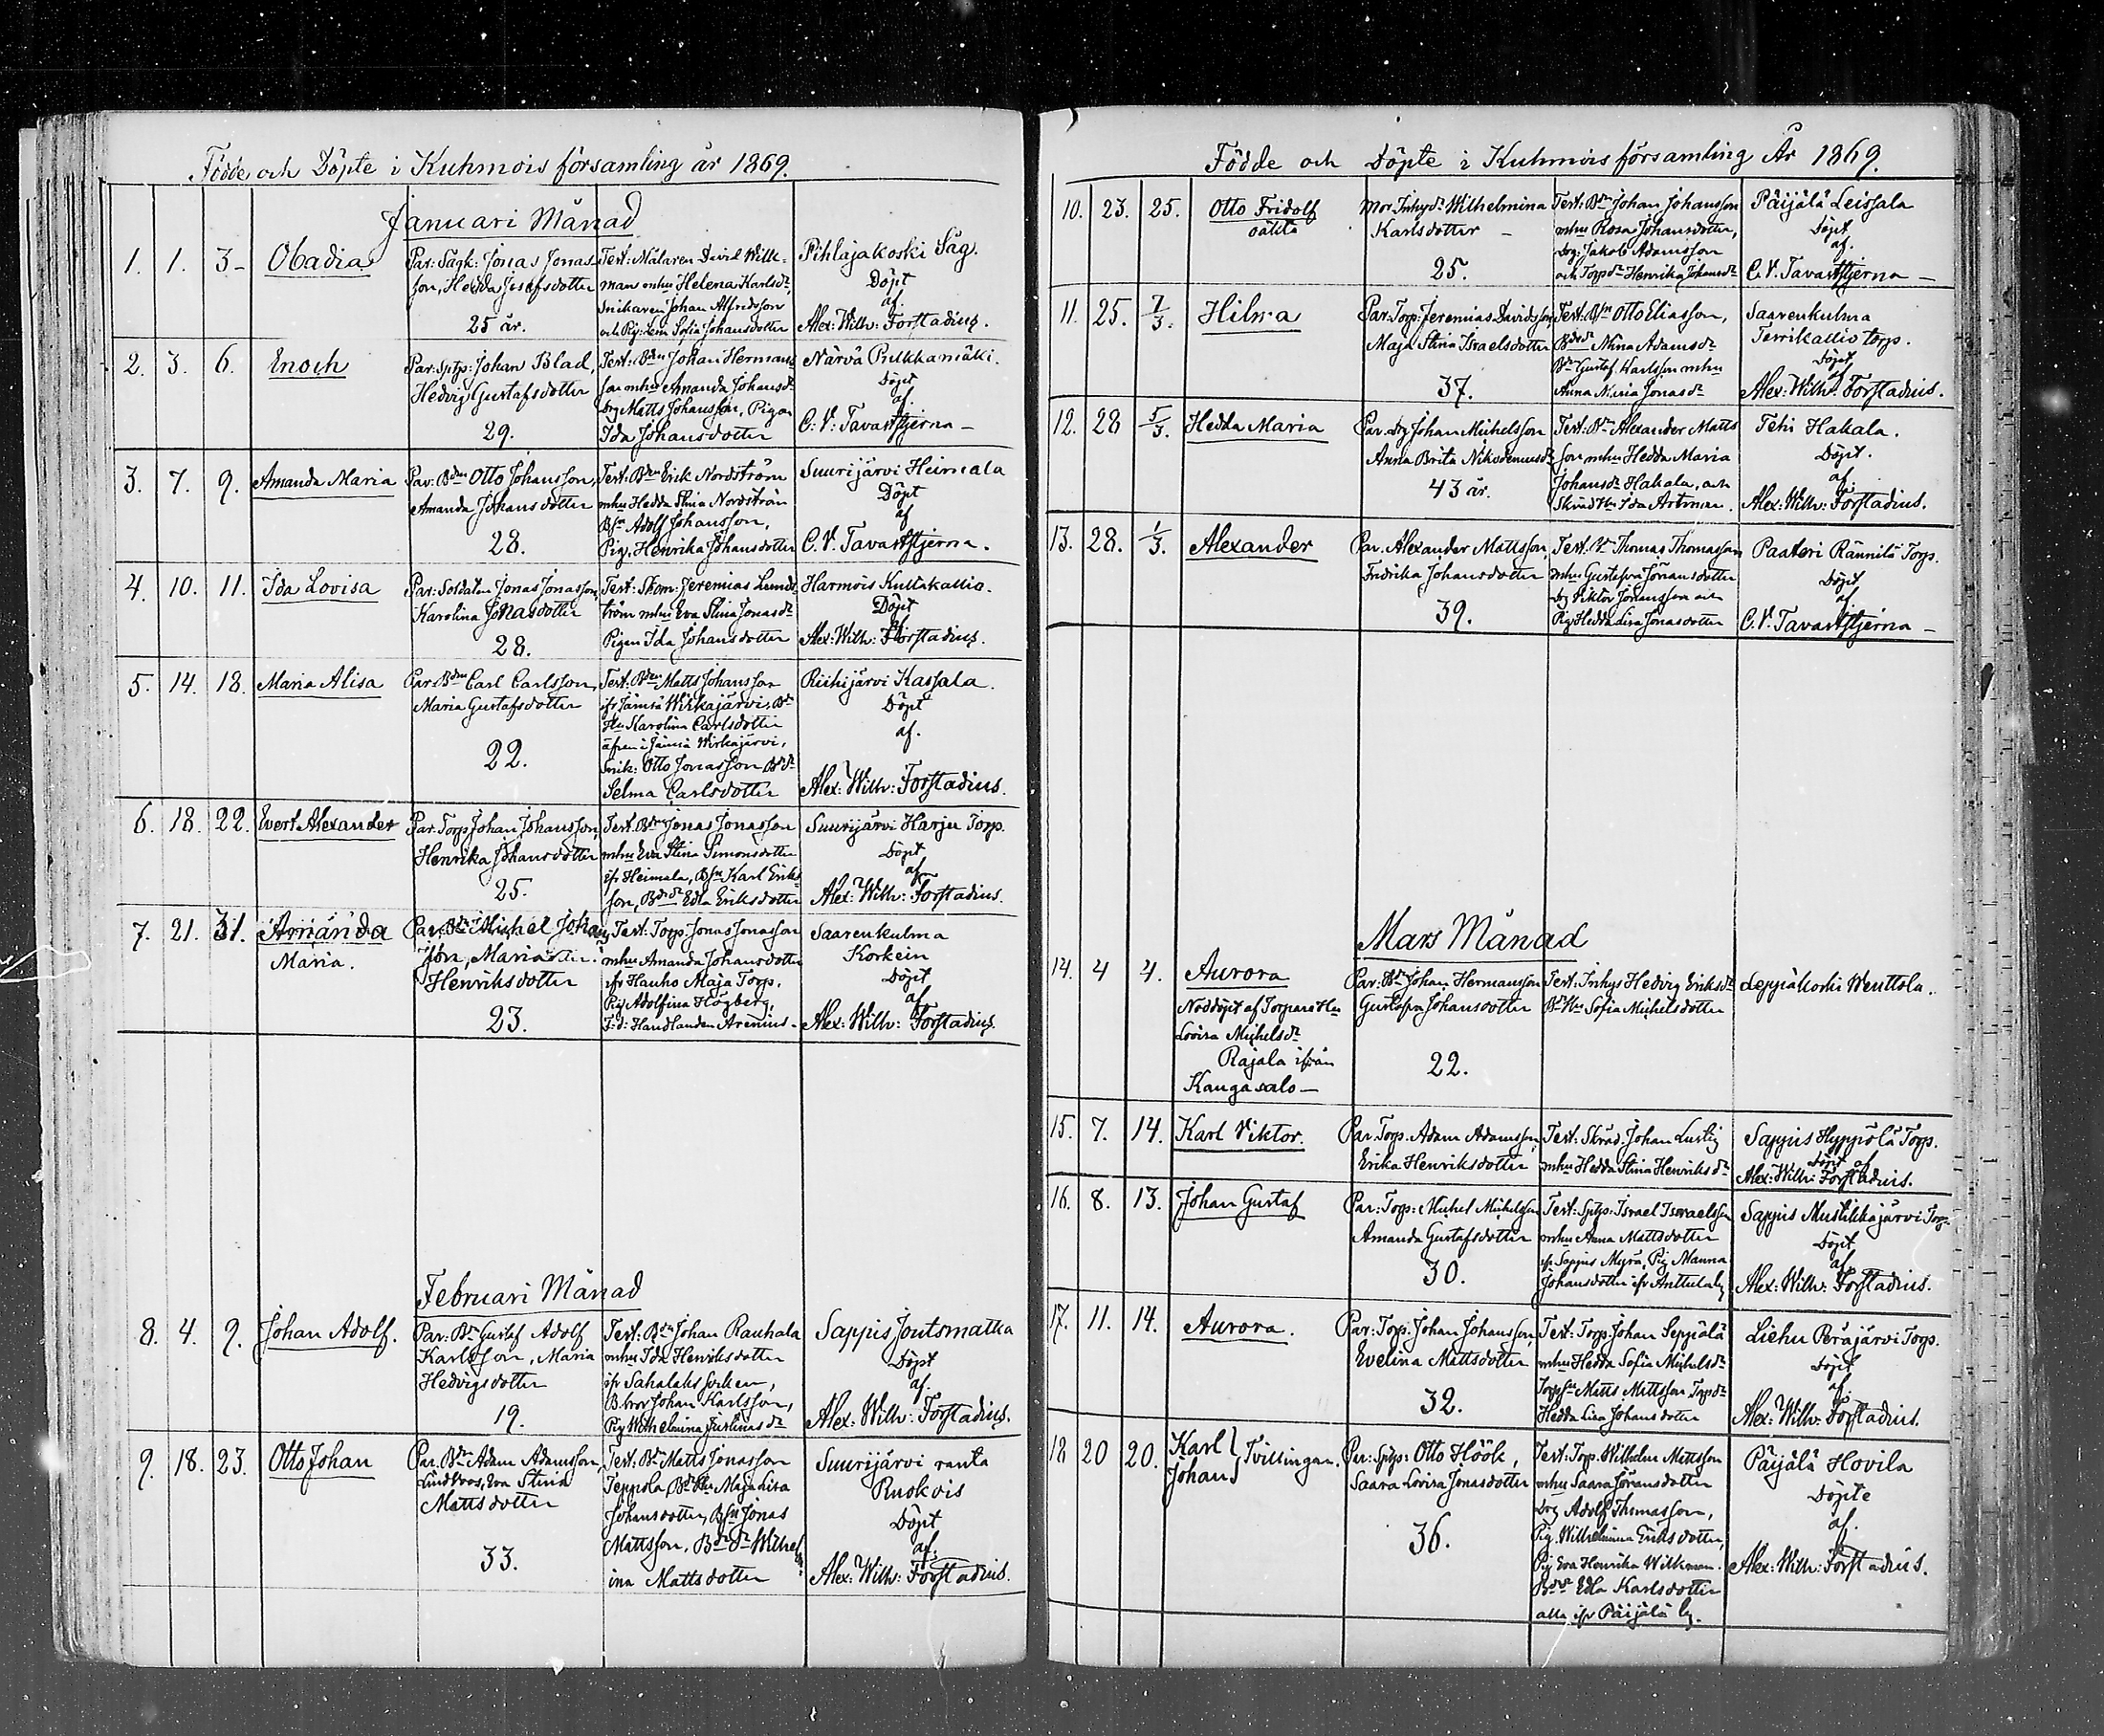 Födde och Döpte i Kuhmois församling år 1869.
Januari Månad
1. 1. 3- Obadia
Par: Sågk: Jonas Jonas-
son, Hedda Josefsdotter
25 år.
Test: Målaren David Will-
man mhu Helena Karlsdr,
Snikaren Johan Alfredsson
och Pig: Sofia Johansdotter
Pihlajakoski Såg.
Döpt
af.
Alex: Wilh: Forstadius.
2. 3. 6. Enoch
Par: Sptp: Johan Blad,
Hedvig Gustafsdotter
29.
Test: Bdn Johan Hermans-
son mhu Amanda Johansdr
Drg Matts Johansson, Pigan
Ida Johansdotter
Närvä Pukkamäki.
Döpt
af.
C. V. Tavaststjerna -
3. 7. 9. Amanda Maria
Par: Bdn Otto Johansson,
Amanda Johansdotter
28.
Test: Bdn Erik Nordström
mhu Hedda Stina Nordström
Bsn Adolf Johansson,
Pig. Henrika Johansdotter
Suurijärvi Heimala
Döpt
af
C. V. Tavaststjerna.
4. 10. 11. Ida Lovisa
Par: Soldaten Jonas Jonasson,
Karolina Jonasdotter
28.
Test: Skom: Jeremias Lund-
ström mhu Eva Stina Jonasdr
Pigan Ida Johansdotter
Harmois Kultakallio.
Döpt
af
Alex: Wilh: Forstadius.
5. 14. 18. Maria Alisa
Par: Bdn Carl Carlsson,
Maria Gustafsdotter
22.
Test: Bdn Matts Johansson
ifr Jämsä Wirkajärvi, Bd
Hu Karolina Carlsdotter
äfven i Jämsä Wirkajärvi,
Snik: Otto Jonasson Bddr
Selma Carlsdotter
Riihijärvi Kassala.
Döpt
af.
Alex: Wilh: Forstadius.
6. 18. 22. Evert Alexander
Par. Torp. Johan Johansson,
Henrika Johansdotter
25.
Test. Bdn Jonas Jonasson
mhu Eva Stina Simonsdotter
ifr Heimala, Bsn Karl Eriks-
son, Bddr Edla Eriksdotter
Suurijärvi Harju Torp.
Döpt
af
Alex: Wilh: Forstadius.
7. 21. 31. Amanda
Maria.
Par. Bdn Michel Johans-
son, Maria
Henriksdotter
23.
Test: Torp. Jonas Jonasson
mhu Amanda Johansdotter
ifr Hauho Maja Torp.
Pig Adolfina Högberg,
F: d: Handlanden Arenius -
Saarenkulma
Korkein
Döpt
af
Alex: Wilh: Forstadius.
Februari Månad
8. 4. 9. Johan Adolf.
Par: Bdn Gustaf Adolf
Karlsson, Maria
Hedvigsdotter
19.
Test: Bdn Johan Rauhala
mhu Ida Henriksdotter
ifr Sahalaks socken,
B. bror Johan Karlsson,
Pig Wilhelmina
Sappis Joutsmatka
Döpt
af.
Alex: Wilh: Forstadius.
9. 18. 23. Otto Johan
Par. Bdn Adam Adamsson
Lindroos, Eva Stina
Mattsdotter
33.
Test: Bdn Matts Jonasson
Teppola, Bd Hu Maja Lisa
Johansdotter, Bsn Jonas
Mattsson, Bddr Wilhel-
ina Mattsdotter
Suurijärvi ranta
Ruokois
Döpt
af.
Alex: Wilh: Forstadius.
Födde och Döpte i Kuhmois församling År 1869.
10. 23. 25. Otto Fridolf
oäkta
Mor. Inhydr Wilhelmina
Karlsdotter -
25.
Test. Bdn Johan Johansson
mhu Rosa Johansdotter,
Drg: Jakob Adamsson
och Torpdr Henrika Johansdr
Päijälä Leissala
Döpt
af.
C. V. Tavaststjerna -
11. 25. 7/3. Hilma
Par. Torp: Jeremias Davidsson
Maja Stina Israelsdotter
37.
Test: Bsn Otto Eliasson,
Bddr Mina Adamsdr
Bdn Gustaf Karlsson mhu
Anna Maria Jonasdr
Saarenkulma
Terrikallio torp.
Döpt
af
Alex: Wilh: Forstadius.
12. 28 5/3. Hedda Maria
Par. Drg Johan Michelsson
Anna Brita Nikodemusdr
43 år.
Test: Bdn Alexander Matts
son mhu Hedda Maria
Johansdr Hakala, och
Skrad Hu Ida Artman.
Tehi Hakala.
Döpt.
af.
Alex: Wilh: Forstadius.
13. 28. 1/3. Alexander
Par. Alexander Mattsson,
Fridrika Johansdotter
39.
Test. Bdn Thomas Thomasson
mhu Gustafva Johansdotter
Drg Viktor Johansson
Pig Hedda Lisa Jonasdotter
Paateri Rännilä Torp.
Döpt
af
C. V. Tavaststjerna -
Mars Månad
14. 4 4. Aurora
Nöddöpt af Torpare Hu
Lovisa Michelsdr
Rajala ifrån
Kangasalo -
Par. Bdn Johan Hermansson
Gustafva Johansdotter
22.
Test. Inhys Hedvig Eriksdr
Bd Hu Sofia Michelsdotter
Leppäkoski Wenttola.
15. 7. 14. Karl Viktor.
Par. Torp. Adam Adamsson,
Erika Henriksdotter
Test: Skräd: Johan Lustig
mhu Hedda Stina Henriksdr
Sappis Hyppölä Torp.
Döpt af
Alex: Wilh: Forstadius.
16. 8. 13. Johan Gustaf
Par: Torp: Michel Michelsson
Amanda Gustafsdotter
30.
Test: Sptp: Israel Israelsson
mhu Anna Mattsdotter
ifr Sappis Myrä, Pig Manna
Johansdotter ifr Anttula by
Sappis Mustikkajärvi Torp.
Döpt
af
Alex: Wilh: Forstadius.
17. 11. 14. Aurora.
Par: Torp. Johan Johansson,
Evelina Mattsdotter
32.
Test: Torp. Johan Seppälä
mhu Hedda Sofia Michelsdr
Torpsn Matts Mattsson Torpdr
Hedda Lisa Johansdotter
Liehu Peräjärvi Torp.
Döpt
af.
Alex: Wilh: Forstadius.
18 20 20. Karl } Tvillingar.
Johan
Par: Sptp: Otto Höök,
Saara Lovisa Jonasdotter
36.
Test: Torp. Wilhelm Mattsson
mhu Saara Göransdotter
Drg Adolf Thomasson,
Pig. Wilhelmina Eriksdotter,
Pig Eva Henrika Willman.
Bddr Edla Karlsdotter
alla ifr Päijälä by.
Päijälä Hovila
Döpte
af.
Alex: Wilh: Forstadius.